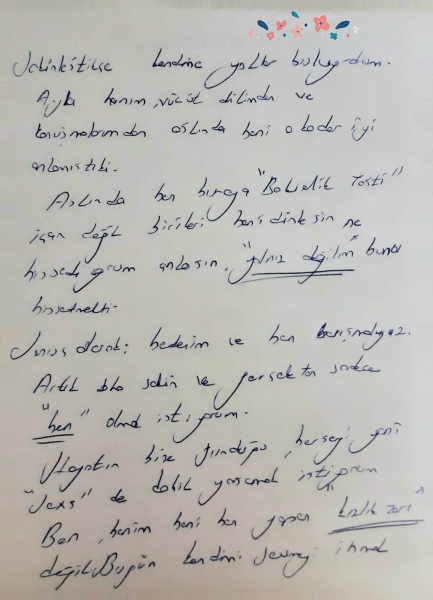 kendime yollar buluyordum.
Ayla hanım, vücut dilimden ve
konuşmalarımdan aslında beni o kadar iyi
anlamıştıki.
Aslında ben buraya "Bekaretlik Testi"
için değil birileri beni dinlesin ne
hissediyorum anlasın, "yalnız değilim" bunu
hissetmekti.
Sonuç olarak; bedenim ve ben barışmalıyız.
Artık daha sakin ve gerçekten sadece
"ben" olmak istiyorum.
Hayatın bize sunduğu, herşeyi yani
"seks" de dahil yaşamak istiyorum
Ben, benim beni ben yapan kızlık zarı"
değil. Bugün kendimi sevmeyi ihmal